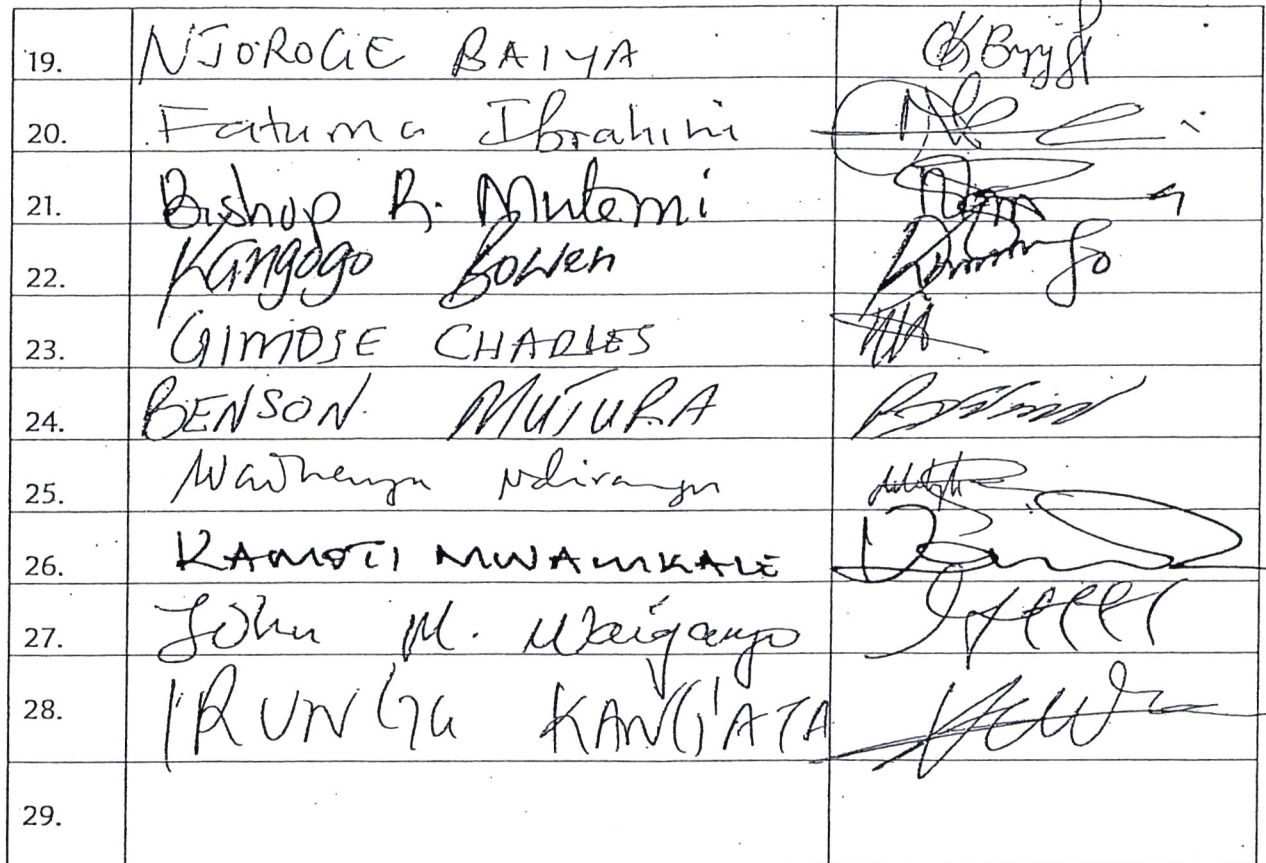 19. NJOROGE BAIYA
20. Fatuma Ibrahim
21. Bishop R. Mutemi
22. Kangogo Bowen
23. GIMOSE CHARLES
24. BENSON MUTURA
25. Ndirangu
26. KAMOTI MWAMKALE
27. John M. Waiganjo
28. IRUNGU KANG'ATA
29.